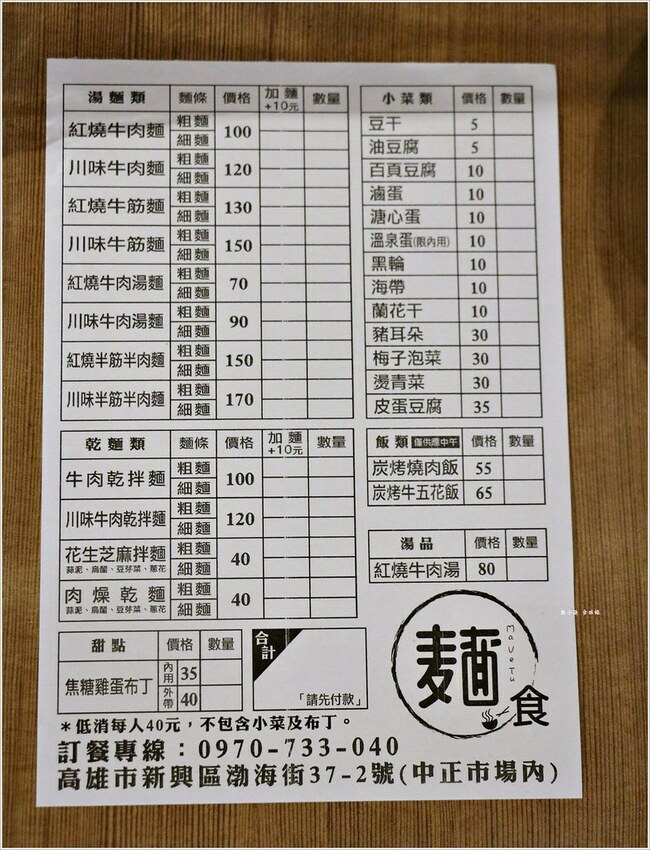 湯麵類 麵條 價格 加麵+10元 數量
紅燒牛肉麵 粗麵 細麵 100
川味牛肉麵 粗麵 細麵 120
紅燒牛筋麵 粗麵 細麵 130
川味牛筋麵 粗麵 細麵 150
紅燒牛肉湯麵 粗麵 細麵 70
川味牛肉湯麵 粗麵 細麵 90
紅燒半筋半肉麵 粗麵 細麵 150
川味半筋半肉麵 粗麵 細麵 170
乾麵類 麵條 價格 加麵+10元 數量
牛肉乾拌麵 粗麵 細麵 100
川味牛肉乾拌麵 粗麵 細麵 120
花生芝麻拌麵 粗麵 細麵 40
蒜泥、烏醋、豆芽菜、蔥花
肉燥乾麵 粗麵 細麵 40
蒜泥、烏醋、豆芽菜、蔥花
甜點 價格 數量
焦糖雞蛋布丁 內用 35
外帶 40
合計
「請先付款」
小菜類 價格 數量
豆干 5
油豆腐 5
百頁豆腐 10
滷蛋 10
溏心蛋 10
溫泉蛋(限內用) 10
黑輪 10
海帶 10
蘭花干 10
豬耳朵 30
梅子泡菜 30
燙青菜 30
皮蛋豆腐 35
飯類 僅供應中午 價格 數量
炭烤燒肉飯 55
炭烤牛五花飯 65
湯品 價格 數量
紅燒牛肉湯 80
麵食
*低消每人40元，不包含小菜及布丁。
訂餐專線：0970-733-040
高雄市新興區渤海街37-2號(中正市場內)